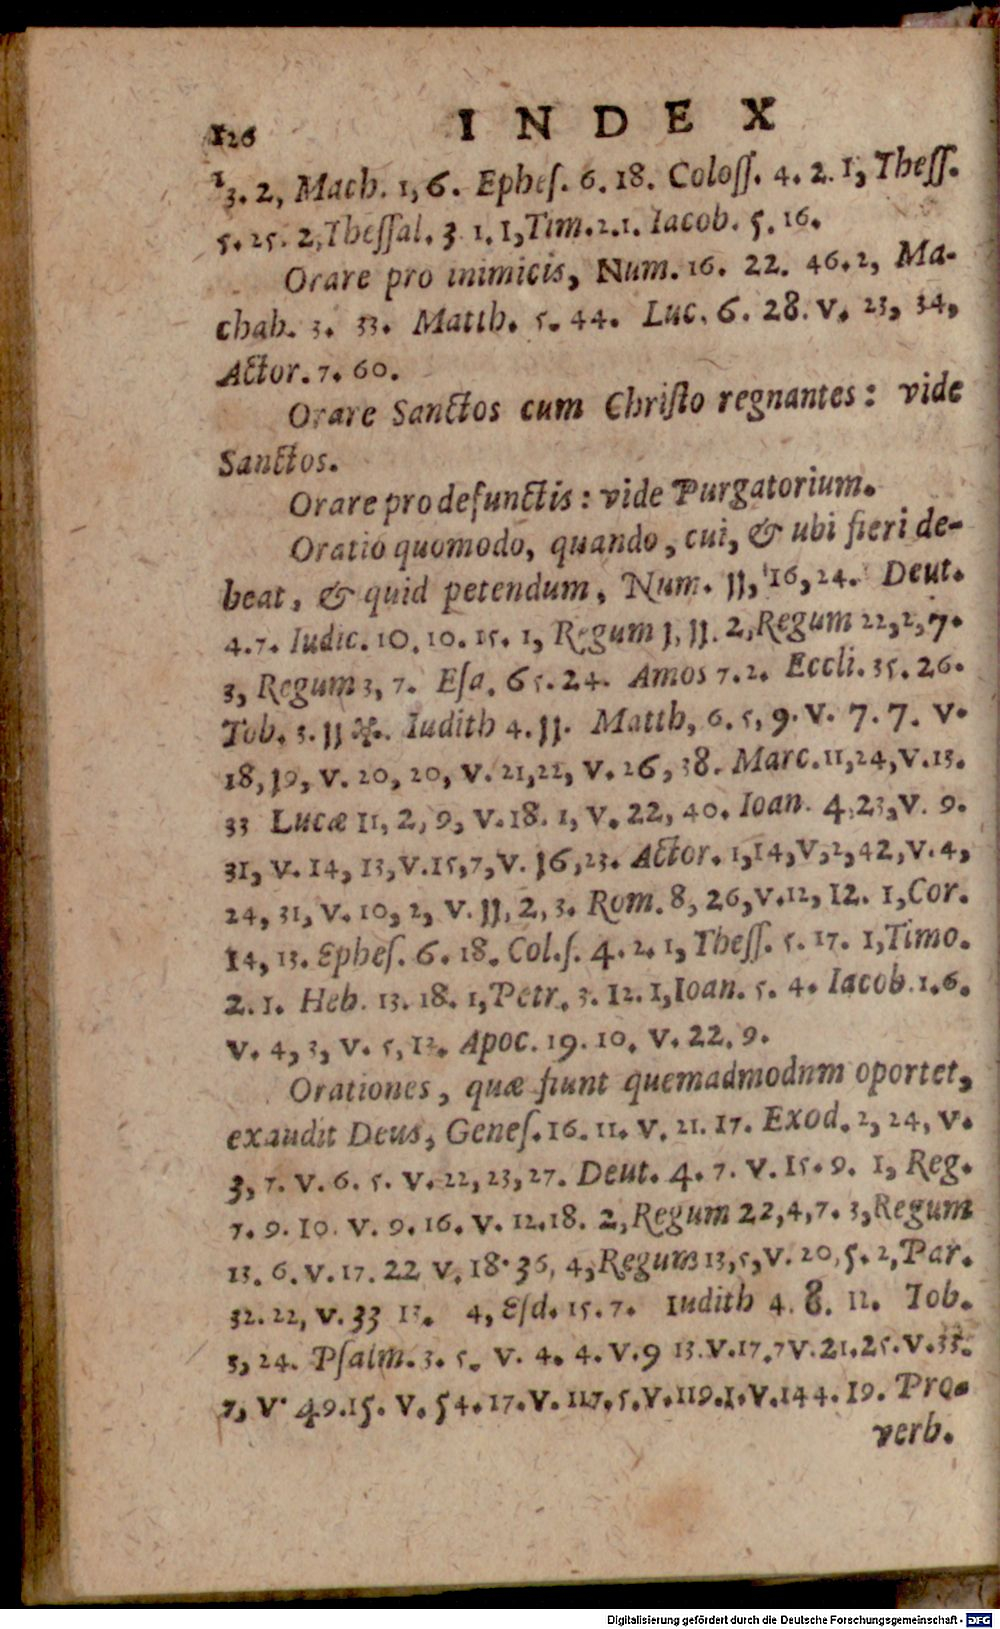 126 INDEX
13. 2, Mach. 1, 6. Epheſ. 6. 18. Coloſſ. 4. 2. 1, Theſſ.
5. 25. 2, Theſſal. 3 1. 1, Tim. 2.1. Iacob. 5. 16.
Orare pro inimicis, Num. 16. 22. 46. 2, Ma-
chab. 3. 33. Matth. 5. 44. Luc. 6. 28. v. 23, 34,
Actor. 7. 60.
Orare Sanctos cum Chriſto regnantes: vide
Sanctos.
Orare pro defunctis: vide Purgatorium.
Oratio quomodo, quando, cui, & ubi fieri de-
beat, & quid petendum, Num. JJ, 16, 24. Deut.
4. 7. Iudic. 10. 10. 15. 1, Regum J, JJ. 2, Regum 22, 2, 7.
3, Regum 3, 7. Eſa. 65. 24. Amos 7. 2. Eccli. 35. 26.
Tob. 3. JJ &. Iudith 4. JJ. Matth, 6. 5, 9. V. 7. 7. V.
18, J9, V. 20, 20, V. 21, 22, V. 26, 38. Marc. 11, 24, V. 13.
33 Lucæ 11, 2, 9, V. 18. 1, V. 22, 40. Ioan. 4, 23, V. 9.
31, V. 14, 13, V. 15, 7, V. J6, 23. Actor. 1, 14, V, 2, 42, V. 4,
24, 31, V. 10, 2, V. JJ, 2, 3. Rom. 8, 26, V. 12, 12. 1, Cor.
14, 13. Epheſ. 6. 18. Col.ſ. 4. 2. 1, Theſſ. 5. 17. 1, Timo.
2. 1. Heb. 13. 18. 1, Petr. 3. 12. 1, Ioan. 5. 4. Iacob. 1. 6.
V. 4, 3, V. 5, 12. Apoc. 19. 10. V. 22. 9.
Orationes, quæ fiunt quemadmodnm oportet,
exaudit Deus, Geneſ. 16. 11. V. 21. 17. Exod. 2, 24, V.
3, 7. V. 6. 5. V. 22, 23, 27. Deut. 4. 7. V. 15. 9. 1, Reg.
7. 9. 10. V. 9. 16. V. 12. 18. 2, Regum 22, 4, 7. 3, Regum
13. 6. V. 17. 22 V. 18. 36, 4, Regum 13, 5, V. 20, 5. 2, Par.
32. 22, V. 33 13. 4, Eſd. 15. 7. Iudith 4. 8. 12. Iob.
3, 24. Pſalm. 3. 5. V. 4. 4. V. 9 13. V. 17. 7 V. 21. 25. V. 33.
7, V. 49. 15. V. 54. 17. V. 117. 5. V. 119. 1. V. 144. 19. Pro-
verb.
Digitalisierung gefördert durch die Deutsche Forschungsgemeinschaft - DFG